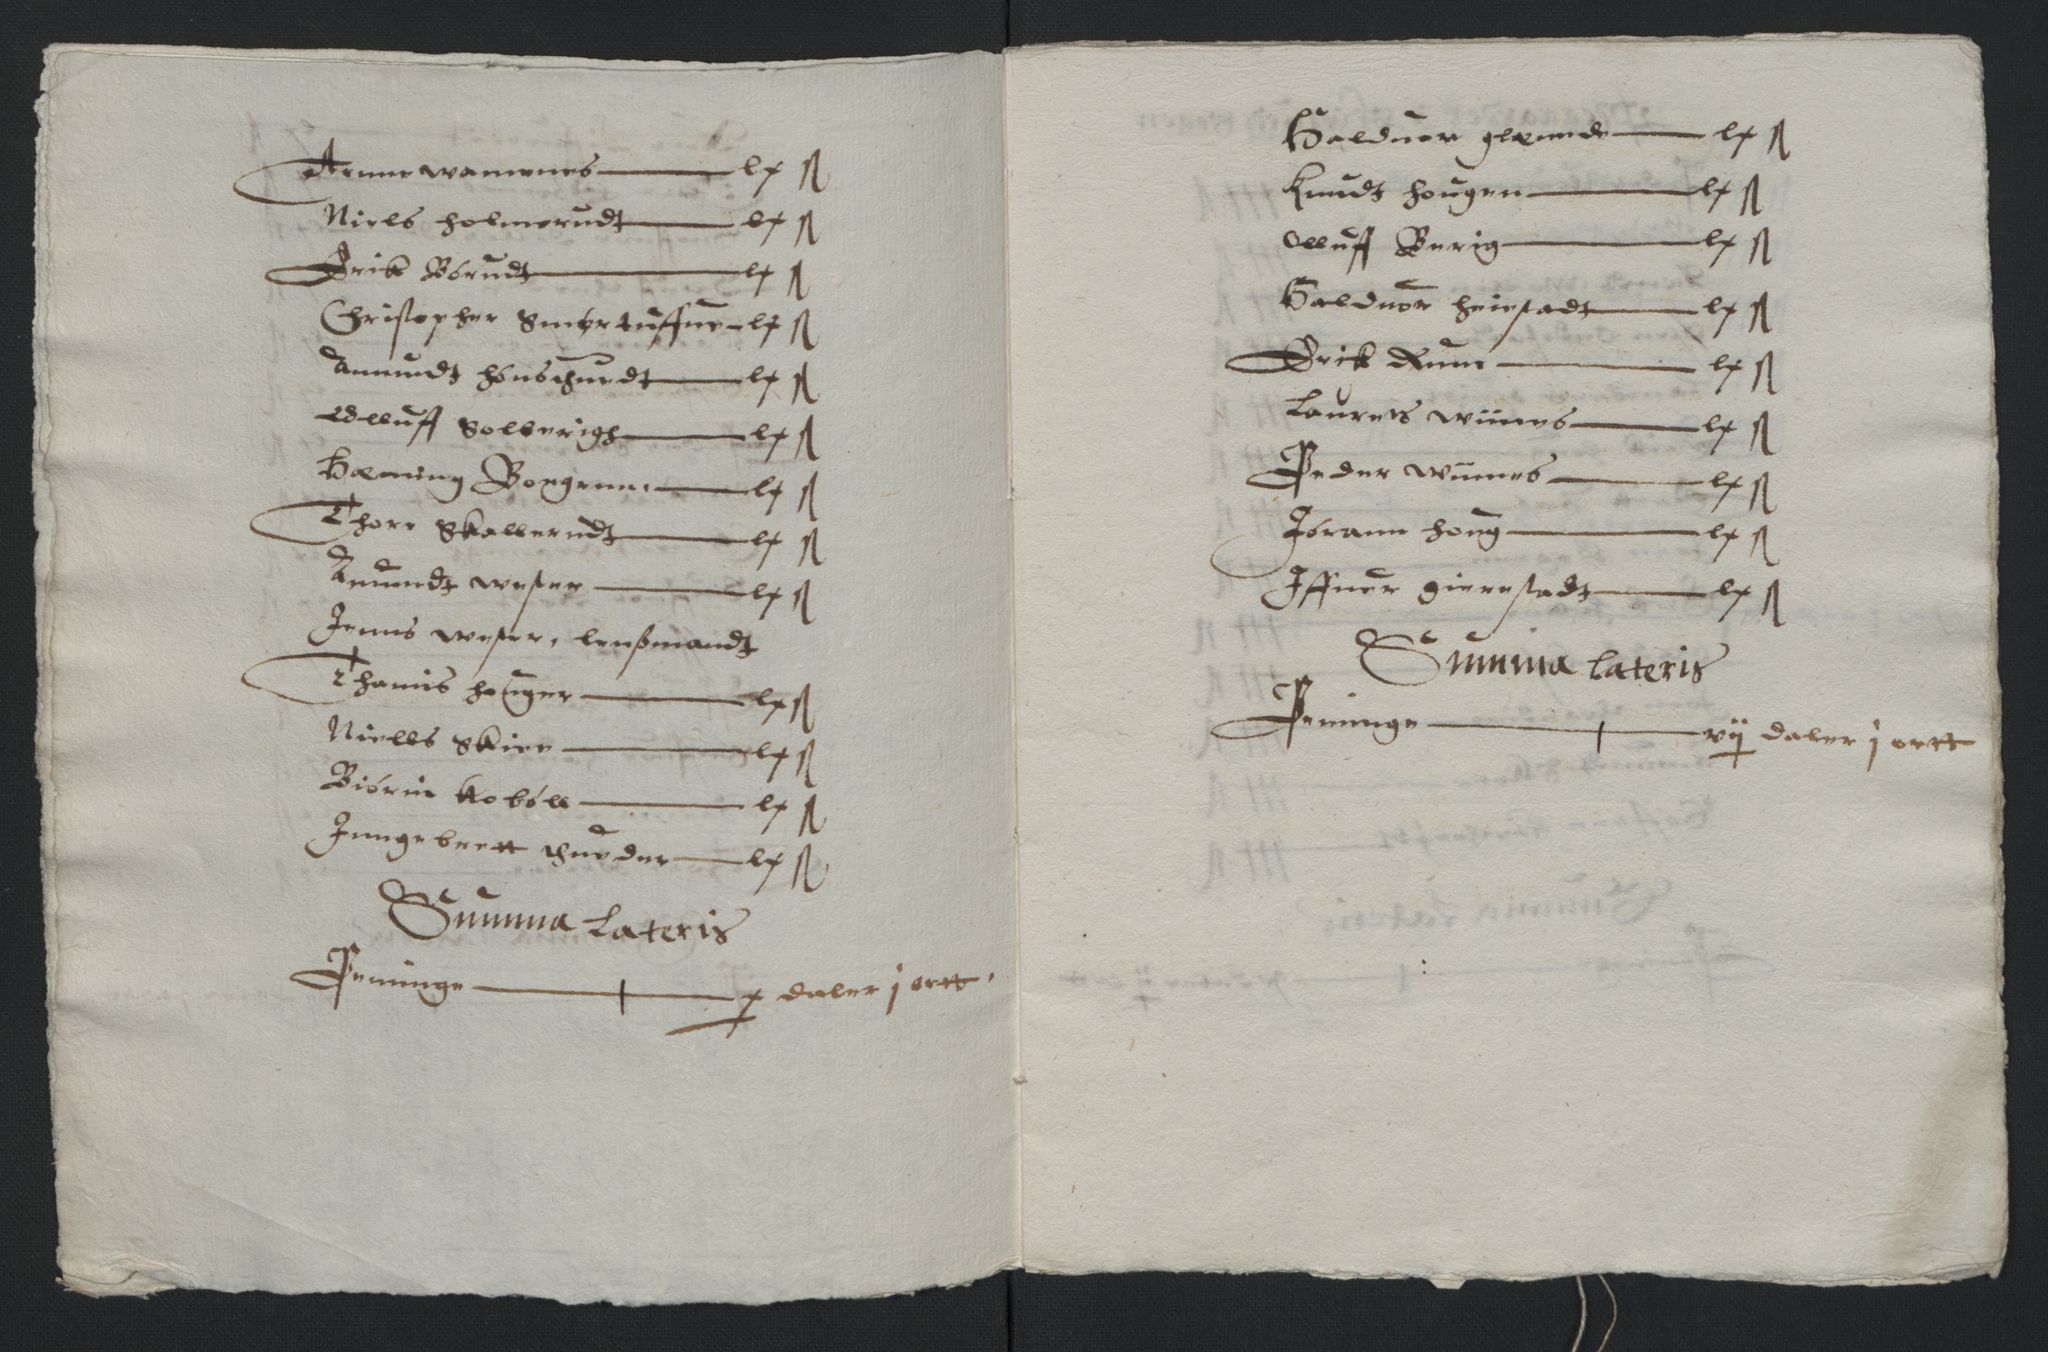 Arnne wamenes lx ß
Niels holmerudt lx ß
Erik Börudt lx ß
Christopher Smörtuffue lx ß
Amundt hönsthuedt lx ß
Olluff Solberigh lx ß
Hening Borgenn lx ß
Thore Skallerudt lx ß
Amundt wester lx ß
Jenns wester, lensmandt
Thamis houger lx ß
Niells Skire lx ß
Biörn koböll lx ß
Inngebrett thueder lx ß
Summa Lateris
Peninge x daler j ortt
Halduor glende lx ß
Knudt hougen lx ß
Olluff Berig lx ß
Halduor heiestadt lx ß
Erik Rune lx ß
Laurets wiines lx ß
Peder wiines lx ß
Jörann houg lx ß
Iffuer gierestadt lx ß
Summa Lateris
Peninge vij daler j ortt